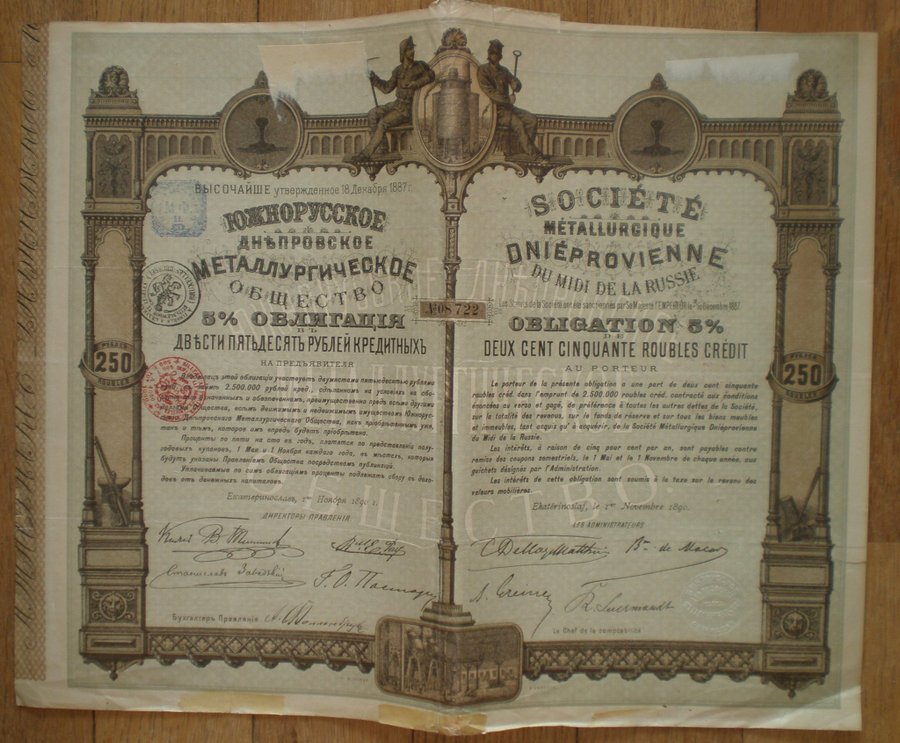 ВЫСОЧАЙШЕ утвержденное 18 Декабря 1887 г.
ЮЖНОРУССКОЕ
ДНѢПРОВСКОЕ
МЕТАЛЛУРГИЧЕСКОЕ
ОБЩЕСТВО
5% ОБЛИГАЦІЯ
ВЪ
ДВѢСТИ ПЯТЬДЕСЯТЪ РУБЛЕЙ КРЕДИТНЫХЪ
НА ПРЕДЪЯВИТЕЛЯ
этой облигаціи участвуетъ двумястами пятьюдесятью рублями
2.500.000 рублей кред.,
преимущественно предъ всѣми другими
Общества, всѣмъ движимымъ и недвижимымъ имуществомъ Южнорус-
Днѣпровскаго Металлургическаго Общества, какъ пріобрѣтеннымъ уже,
такъ и тѣмъ, которое имъ впредь будетъ пріобрѣтено.
Проценты по пяти на сто въ годъ, платятся по представленіи полу-
годовыхъ купоновъ, 1 Мая и 1 Ноября каждаго года, въ мѣстахъ, которыя
будутъ указаны Правленіемъ Общества посредствомъ публикацій.
Уплачиваемые по симъ облигаціямъ проценты подлежатъ сбору съ дохо-
довъ отъ денежныхъ капиталовъ.
Екатеринославъ, 1го Ноября 1890 г.
ДИРЕКТОРЫ ПРАВЛЕНІЯ
Станиславъ
Бухгалтеръ Правленія
№ 08722
250
РУБЛЕЙ
ROUBLES
SOCIÉTÉ
MÉTALLURGIQUE
DNIÉPROVIENNE
DU MIDI DE LA RUSSIE
Les Statuts de la Société ont été sanctionnés par Sa Majesté l'EMPEREUR le Décembre 1887
OBLIGATION 5%
DE
DEUX CENT CINQUANTE ROUBLES CRÉDIT
AU PORTEUR
Le porteur de la présente obligation a une part de deux cent cinquante
roubles créd. dans l'emprunt de 2.500.000 roubles créd. contracté aux conditions
énoncées au verso et gagé, de préférence à toutes les autres dettes de la Société,
sur la totalité des revenus, sur le fonds de réserve et sur tous les biens meubles
et immeubles, tant acquis qu'à acquérir, de la Société Métallurgique Dniéprovienne
du Midi de la Russie.
Les intérêts, à raison de cinq pour cent par an, sont payables contre
remise des coupons semestriels, le 1 Mai et le 1 Novembre de chaque année, aux
guichets désignés par l'Administration.
Les intérêts de cette obligation sont soumis à la taxe sur le revenu des
valeurs mobilières.
Ekatérinoslaf, le 1er Novembre 1890.
LES ADMINISTRATEURS
Le Chef de la comptabilité
250
РУБЛЕЙ
ROUBLES